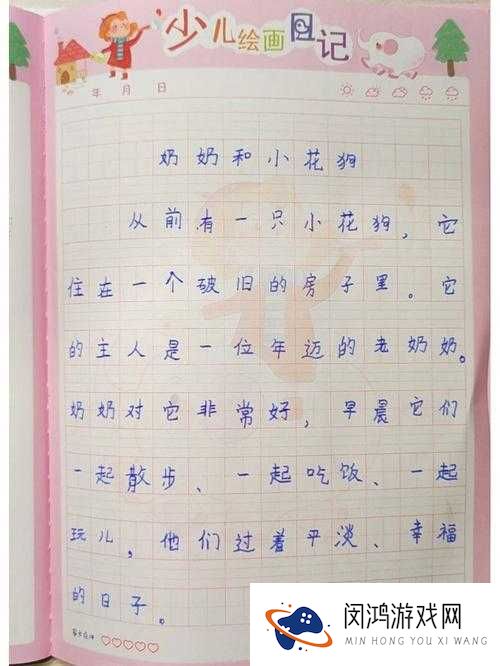 少儿绘画日记
年 月 日
奶奶和小花狗
从前有一只小花狗，它
住在一个破旧的房子里。它
的主人是一位年迈的老奶奶。
奶奶对它非常好，早晨它们
一起散步、一起吃饭、一起
玩儿，他们过着平淡、幸福
的日子。
闵鸿游戏网
MIN HONG YOU XI WANG